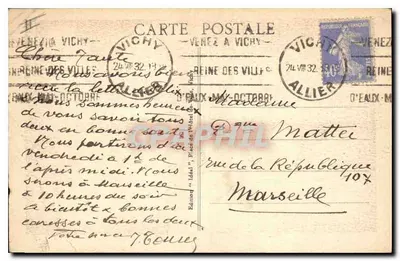 CARTE POSTALE
VENEZ A VICHY
VICHY
24 VII 32
ALLIER
REINE DES VILLES
D'EAUX MAI-OCTOBRE
VENEZ A VICHY
REINE DES VILLES
D'EAUX MAI-OCTOBRE
VICHY
24 VII 32
ALLIER
Nous avons bien
la lettre
sommes heureux
de vous savoir tous
deux en bonne santé
Nous partirons d'ici
vendredi à 1h de
l'après midi. Nous
serons à Marseille
à 10 heures du soir
à bientôt & bonnes
caresses à tous les deux
Madame
Mattei
rue de la République
107
Marseille